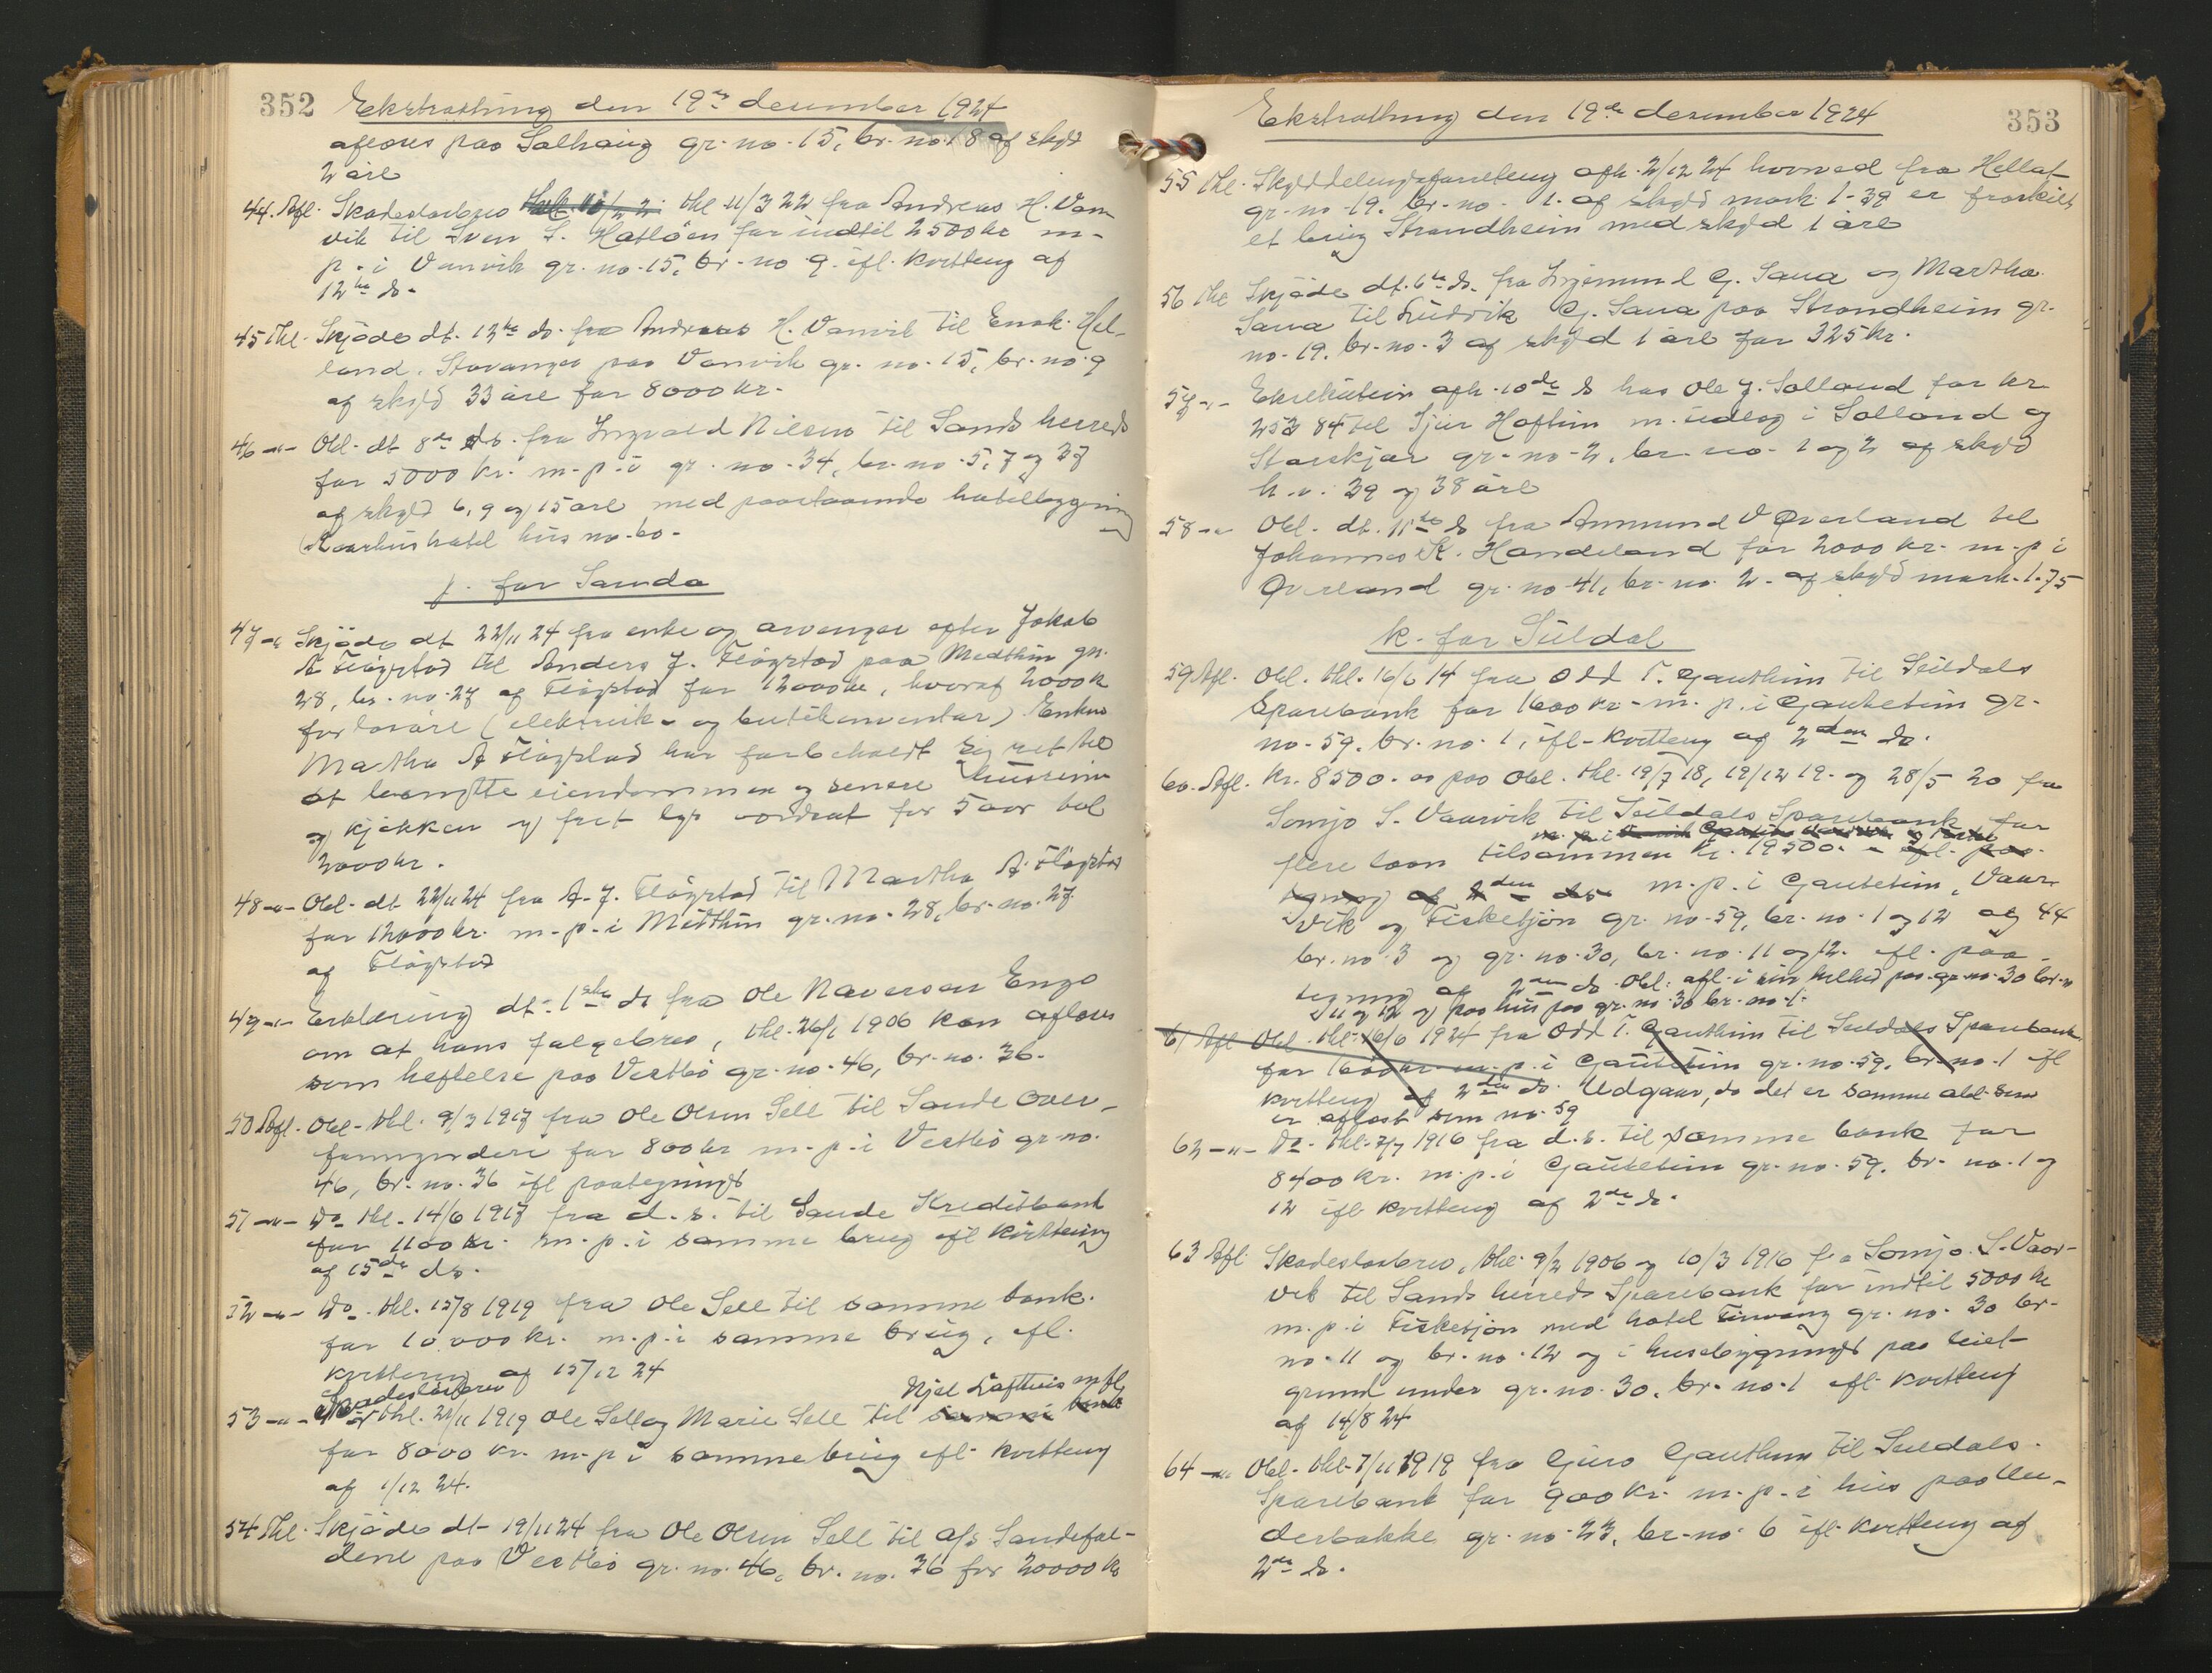 352 Ekstratting den 19de desember 1924
aflæses paa Solhaug gr. no. 15, br. no. 18 af skyld
2 øre
44. Afl. Skadesløsbrev thl 11/3 22 fra Andreas H. Van-
vik til Sven S. Hatløen for indtil 2500 kr m-
p. i Vanvik gr. no. 15, br-no 9. ifl. kvittering af
12te ds.
45 Thl. Skjøde dt. 13de ds. fra Andreas H. Vanvik til Enok Hel-
land, Stavanger paa Vanvik gr. no. 15, br. no. 9
af skyld 33 øre for 8000 kr.
46 -"- Obl. dt 8de ds. fra Ingvald Nilsen til Sands herred
for 5000 kr. m-p-i gr. no. 34, br. no. 5, 7 og 37
af skyld 6, 9 og 15 øre med paastaaende hotelbygning
(Aarhus hotel hus no. 60.
j. for Sauda
47 -"- Skjøde dt 22/11 24 fra enke og arvinger efter Jakob
A Fløgstad til Anders J. Fløgstad paa Midthun gr.
28, br. no. 27 af Fløgstad for 12000 kr, hvoraf 2000 kr
for løsøre (elektrisk- og butikinventar). Enken
Martha A Fløgstad har forbeholdt sig ret til
at benytte eiendommen og senere husrum
og kjøkken og frit lys vordsat for 5 aar til
2000 kr.
48 -"- Obl. dt 22/11 24 fra A. J. Fløgstad til Martha A. Fløgstad
for 12000 kr. m-p-i Midthun gr. no. 28, br. no. 27
af Fløgstad
49 -"- Erklæring dt. 1ste ds fra Ole Naversen Enge
om at hans følgebrev, thl. 26/1 1906 kan aflæses
som heftelse paa Vestbø gr. no. 46, br. no. 36.
50 Afl. Obl. thl. 9/3 1917 fra Ole Olsen Sell til Sande over-
formynderi for 800 kr m-p-i Vestbø gr. no.
46, br. no. 36 ifl paategningt
51 -"- Do thl. 14/6 1917 fra d. s. til Saude Kreditbank
for 1100 kr. m-p-i samme brug ifl kvittering
af 15de ds.
52 -"- Do. thl. 15/8 1919 fra Ole Sell til samme bank.
for 10,000 kr. m-p-i samme brug, ifl.
kvittering af 15/12 24
Skadesløsbrev Njæl Lofthus m fl
53 -"- thl. 21/11 1919 Ole Sell og Marie Sell til samme bank
for 8000 kr. m-p i samme brug ifl kvittering
af 1/12 24.
54 Thl. Skjøde dt- 19/11 24 fra Ole Olsen Sell til a/s Saudefal-
dene paa Vestbø gr. no. 46, br. no. 36 for 20000 kr
Ekstratting den 19de desember 1924 353
55 thl. Skylddelingsforretning afh. 2/12 24 hvorved fra Hellat
gr-no 19. br-no. 1. af skyld mark 1-39 er fraskilt
et brug Strandheim med skyld 1 øre
56 thl Skjøde dt. 6te ds. fra Ingemund G. Saua og Martha
Saua til Ludvik G. Saua paa Strandheim gr.
no. 19. br-no. 3 af skyld 1 øre for 325 kr.
57 -"- Eksekution afh. 10de ds hos Ole J. Solland for kr
253 84 til Sjur Haftun m. udlæg i Solland og
Storskjær gr-no-2, br-no. 1 og 2 af skyld
h. v. 39 og 38 øre
58 -"- Obl. dt. 11te ds fra Ammund V Øverland til
Johannes K. Handeland for 2000 kr. m-p i
Øverland gr. no 41, br. no. 2 - af skyld mark 1-75
k. for Suldal
59 Afl. Obl. thl. 16/6 14 fra Odd T. Gauthun til Suldals
Sparebank for 1600 kr - m. p. i Gautetun gr.
no. 59. br. no. 1, ifl. kvittering af 2den ds.
60. Afl. Kr. 8500. 00 paa Obl. thl. 19/7 18, 19/12 19. og 28/5 20 fra
Somjo S. Vaarvik til Suldals Sparebank for
flere laan tilsammen kr. 19500. - ifl. paa-
tegning af 2den ds m-p-i Gautetun, Vaar-
vik og Fisketjøn gr. no. 59, br. no. 1 og 12 og 44
br. no. 3 og gr. no. 30, br. no. 11 og 12. ifl. paa-
tegning af 2den ds. Obl. afl. i sin helhed paa gr. no. 30 br. n
11 og 12 og paa hus paa gr. no 30 br. no. 1.
61 Afl Obl. thl. 16/6 1924 fra Odd T. Gauthun til Suldals Sparebank
for 1600 kr. m-p-i Gautetun gr. no. 59, br. no. 1 ifl
kvittering af 2den ds. Udgaar, da det er samme obl. som
er aflæst som no. 59
62 -"- Do. thl. 7/7 1916 fra d. s. til samme bank for
8400 kr. m-p-i Gautetun gr. no. 59. br. no. 1 og
12 ifl kvittering af 2den ds.
63 Afl. Skadesløsbrev, thl. 9/2 1906 og 10/3 1916 fra Somjo S. Vaar-
vik til Sands herreds Sparebank for indtil 5000 kr
m-p-i Fisketjøn med hotel Furvang gr. no. 30 br-
no. 11 og br. no. 12 og i husebygningt paa leiet
grund under gr. no. 30. br. no. 1 ifl. kvittering
af 14/8 24
64 -"- Obl. thl. 7/11 1919 fra Guro Gauthun til Suldals
Sparebank for 900 kr. m-p-i hus paa Un-
derbakke gr. no. 23, br-no. 6 ifl. kvittering af
2den ds.